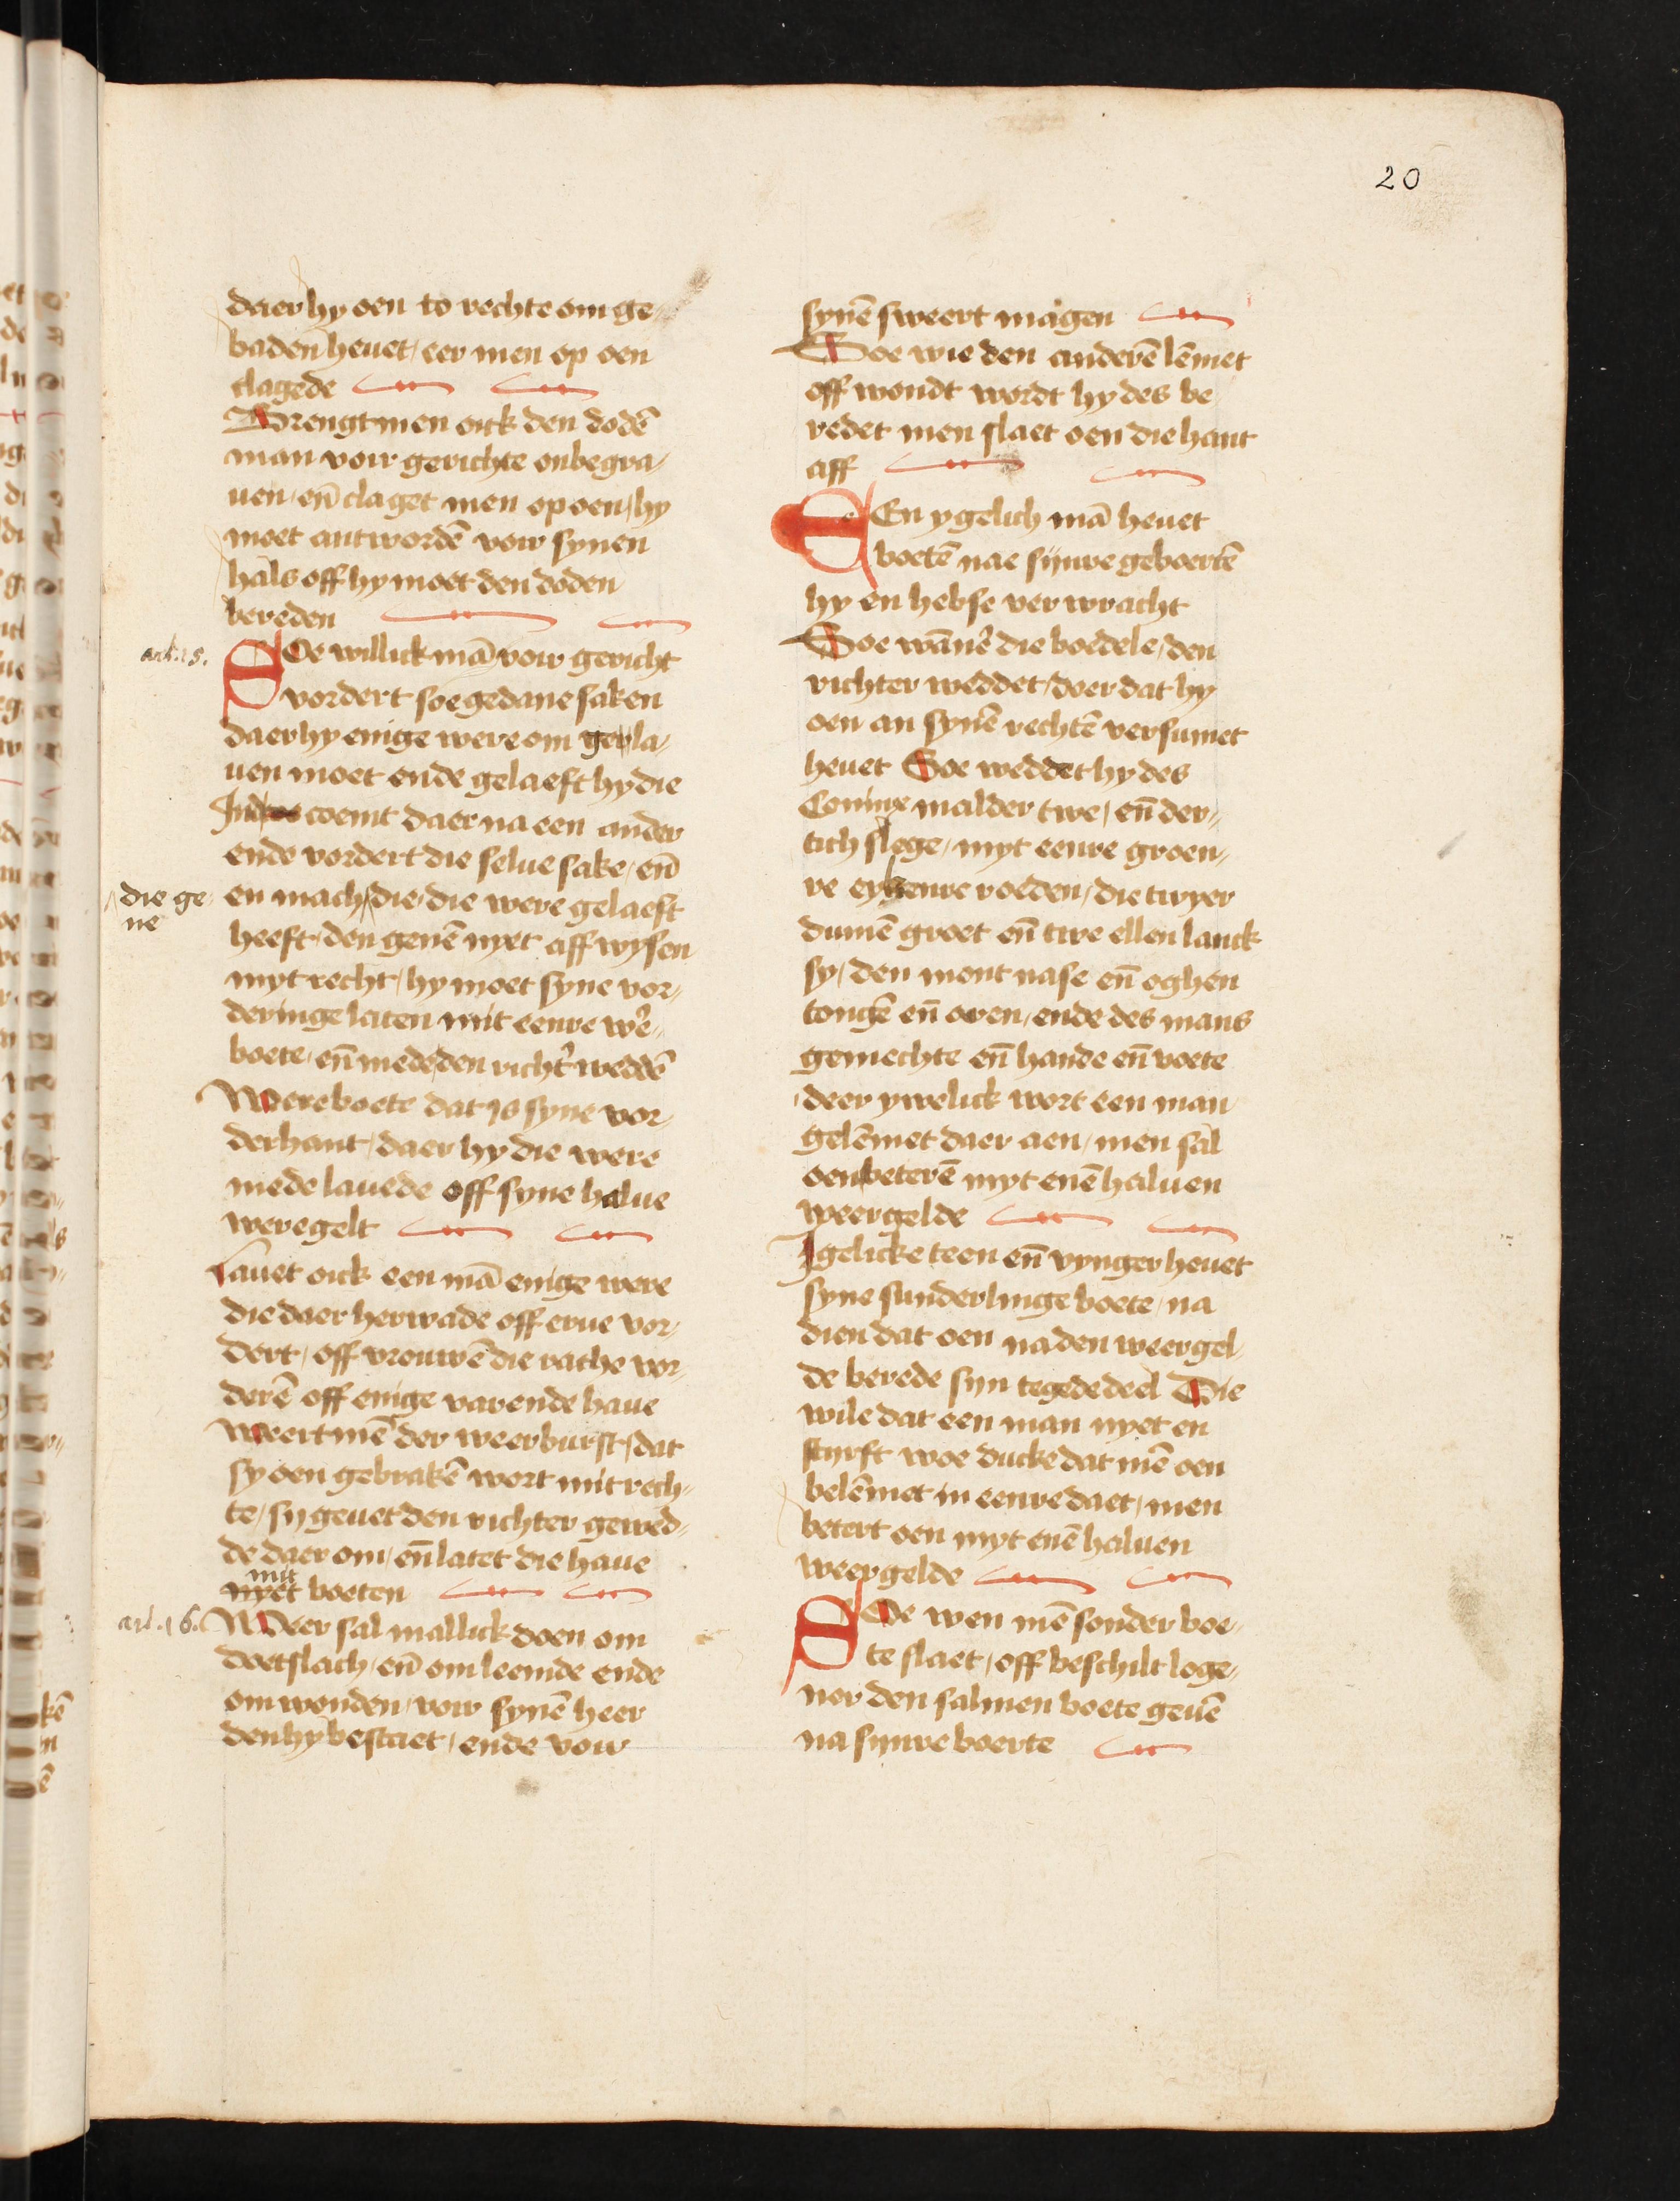 20
daer hy oen to rechte om ge⸗
baden heuet / eer men op oen
clagede
Brengt men oick den dodē
man voir gerichte onbegra⸗
uen / eñ claget men op oen / hy
moet antwordē voir synen
hals off hy moet den doden
bereden
art. 15.
SOe willick mā voir gericht
vordert soe gedane saken
daer hy enige were om gela⸗
uen moet ende gelaeft hy die
Ind coemt daer na een ander
ende vordert die selue sake / eñ
die ge
ne
en mach die / die were gelaeft
heeft / den genē nyet aff wysen
myt recht / hy moet syne vor⸗
deringe laten mit eenre we͛⸗
boete / eñ mede den richt͛ weddē
Wereboete dat is syne vor⸗
derhant / daer hy die were
mede lauede off syne halue
weregelt
Lauet oick een mā enige were
die daer herwade off erue vor⸗
dert / off vrouwē die rathe vor⸗
derē off enige varende haue
Weert mē der weerburst / dat
sy oen gebrakē wort mit rech⸗
te / sy geuet den richter gewed⸗
de daer om / eñ latet die haue
mit
nyet boeten
art. 16.
Weer sal mallick doen om
doetslach / eñ om leemde ende
om wonden / voir synē heer
den hy bestaet / ende voir
synē sweert magen
Soe wie den anderē lēmet
off wondt wordt hy des be
redet men slaet oen die hant
aff
EEn ygelich mā heuet
boetē nae sijnre geboertē
hy en hebse verwracht
Soe wāne͛ die boedele / den
richter weddet / doer dat hy
oen an synē rechtē versumet
heuet Soe weddet hy des
Coninx malder twe / eñ der⸗
tich slege / myt eenre groen⸗
re eykenre roeden / die twyer
dumē groet eñ twe ellen lanck
sy / den mont nase eñ oghen
tongē eñ oren / ende des mans
gemechte eñ hande eñ voete
deer ywelick wort een man
gelēmet daer aen / men sal
oen beterē myt enē haluen
weergelde
Igelicke teen eñ vynger heuet
syne sunderlinge boete / na
dien dat oen na den weergel⸗
de berede syn tegede deel Die
wile dat een man nyet en
styrft woe ducke dat mē oen
belēmet in eenre daet / men
betert oen myt enē haluen
weergelde
SOe wen mē sonder boe⸗
te slaet / off beschilt loge⸗
ner den salmen boete geuē
na synre boerte